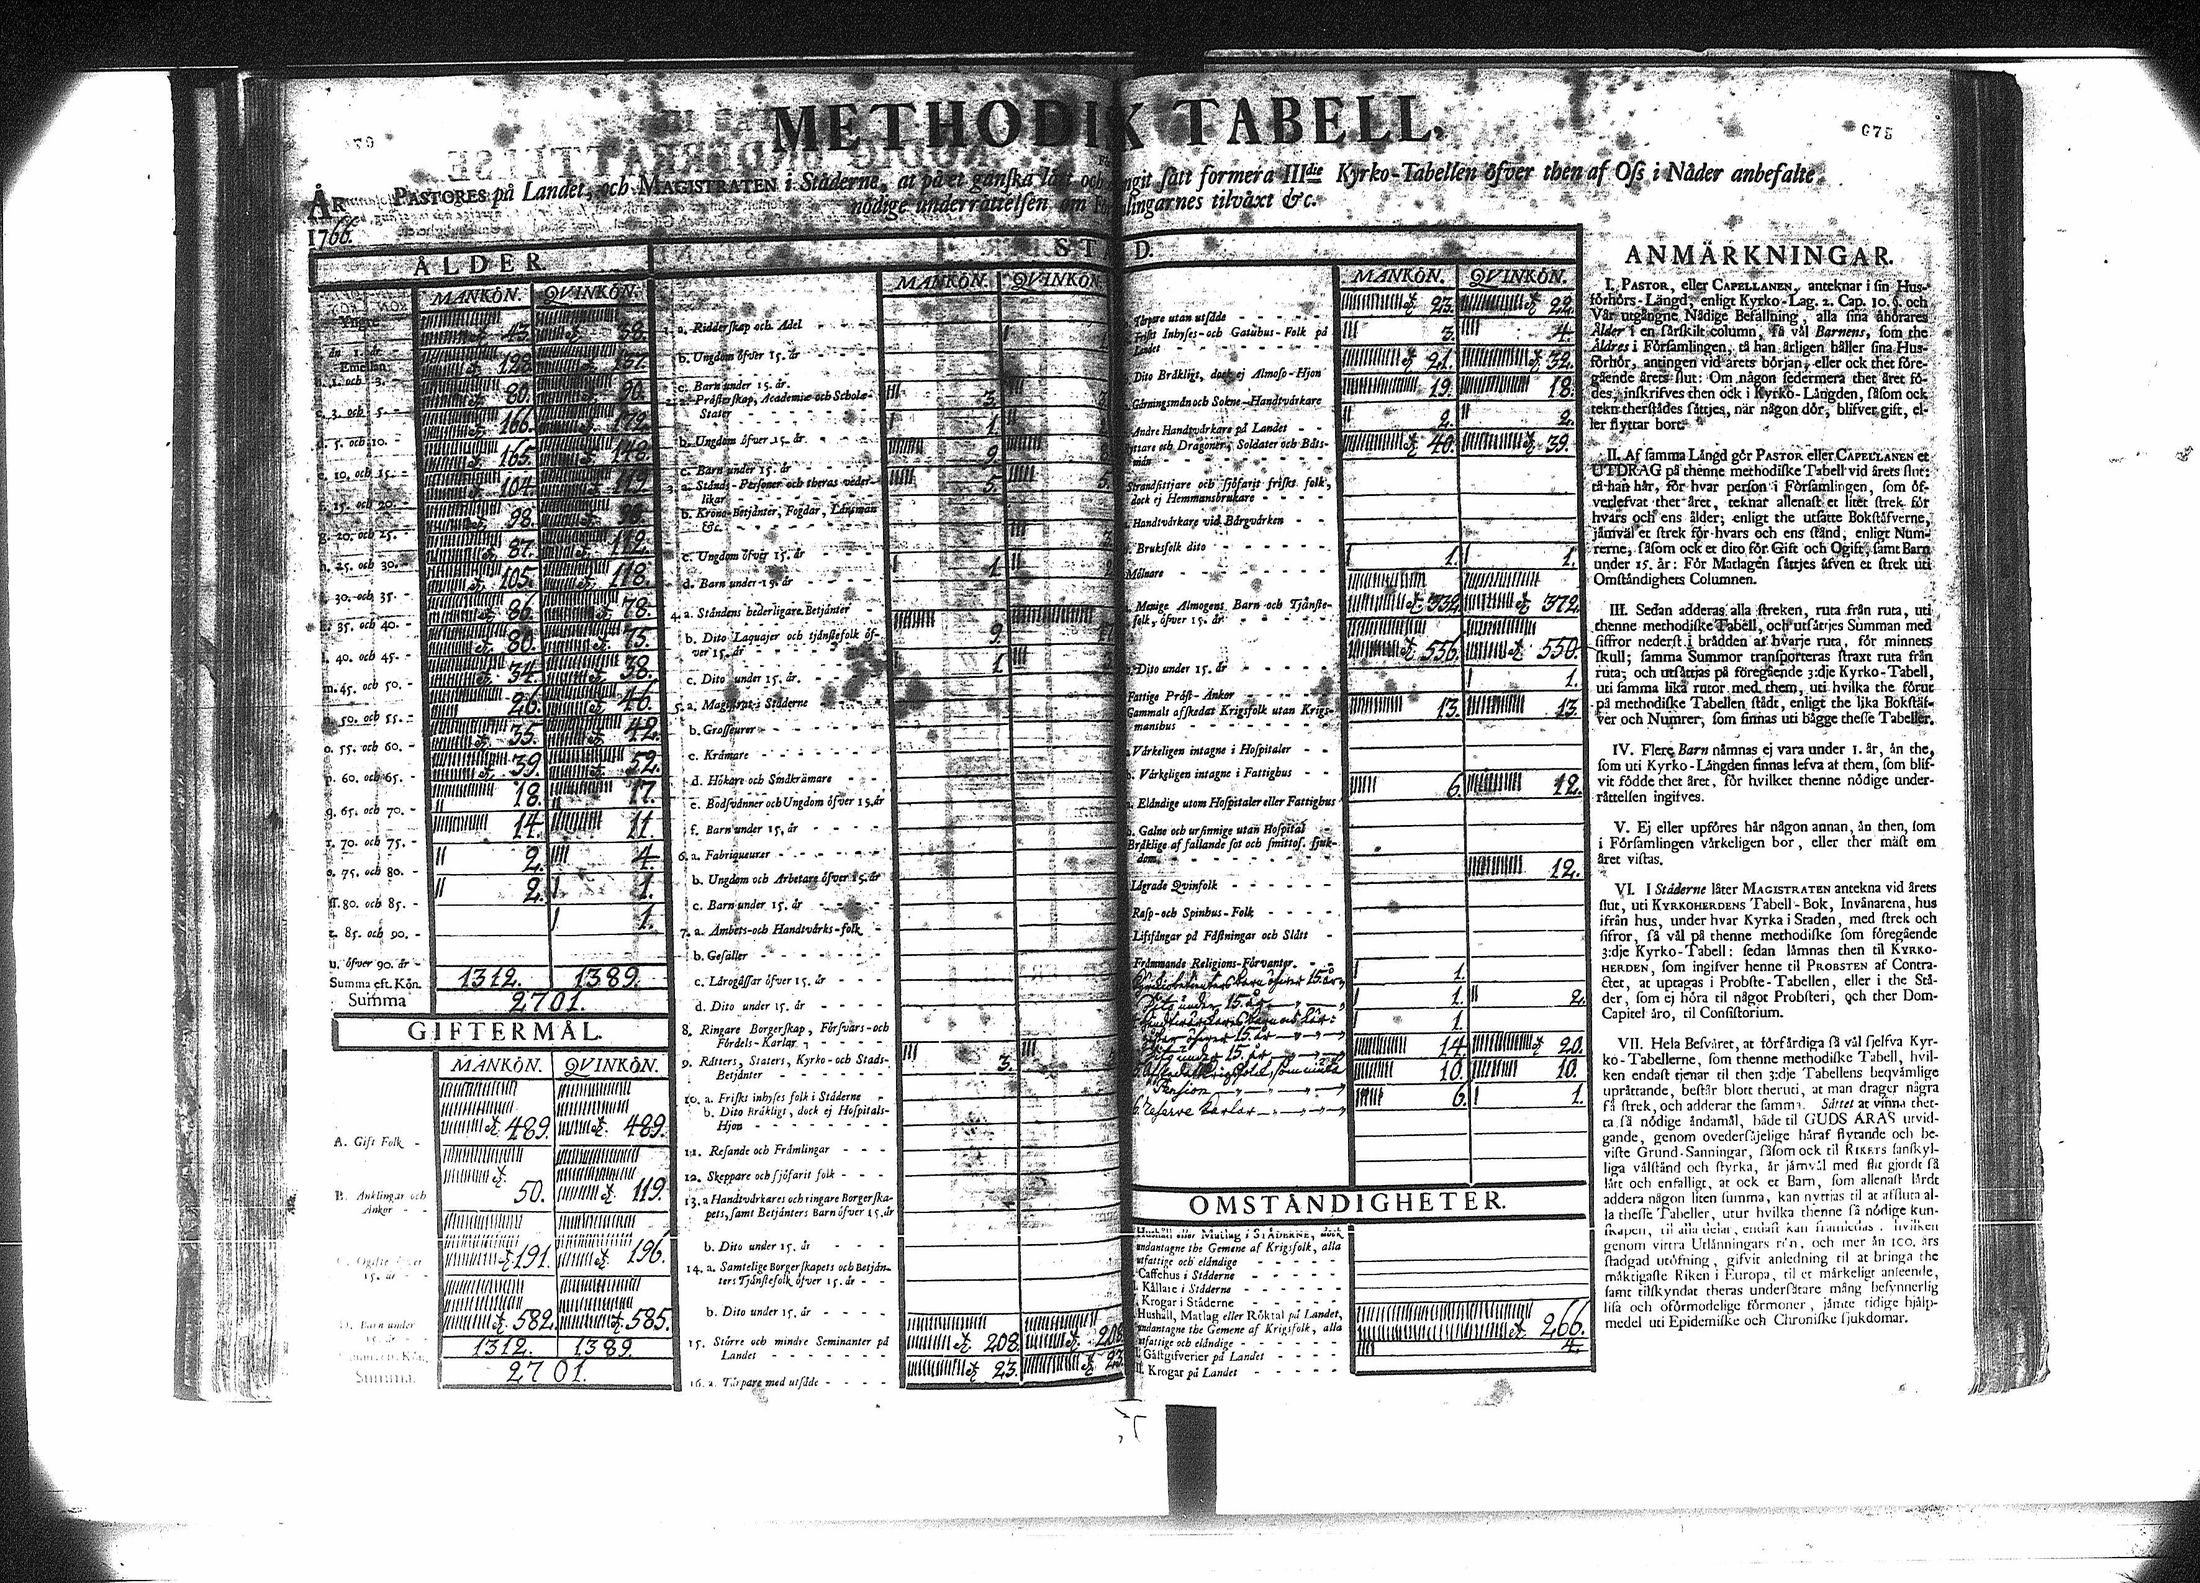 METHODIK TABELL.
075
ÅR PASTORES på Landet, och MAGISTRATEN i Städerne, at på et ganska lätt och sätt formera IIIdie Kyrko-Tabellen öfver then af Oss i Nåder anbefalte
1766. nödige underrättelsen om tilväxt &c.
ÅLDER.
MANKÖN. QVINKÖN.
Yngre än 1. år 43. 38.
Emellan
b. 1. och 3. 128. 137.
c. 3. och 5. 80. 90.
d. 5. och 10. 166. 172.
e. 10. och 15. 165. 148.
f. 15. och 20. 104. 119.
g. 20. och 25. 98.
h. 25. och 30. 87. 112.
i. 30. och 35. 105. 118.
k. 35. och 40. 86. 78.
l. 40. och 45. 80. 75.
m. 45. och 50. 34. 38.
n. 50. och 55. 26. 46.
o. 55. och 60. 35. 42.
p. 60. och 65. 39. 52.
q. 65. och 70. 18. 17.
r. 70. och 75. 14. 11.
s. 75. och 80. 2. 4.
ff. 80. och 85. 2. 1.
t. 85. och 90. 1.
u. öfver 90. år
Summa eft. Kön. 1312. 1389.
Summa 2701.
GIFTERMÅL.
MANKÖN. QVINKÖN.
A. Gift Folk 489. 489.
B. Änklingar och Änkor 50. 119.
C. Ogifte öfver 15. år 191. 196.
D. Barn under 15. år 582. 585.
1312. 1389.
Summa. 2701.
STÅND.
MANKÖN. QVINKÖN.
1. a. Ridderskap och Adel
b. Ungdom öfver 15. år
c. Barn under 15. år.
2. a. Prästerskap, Academiæ och Scholæ-Stater 3.
b. Ungdom öfver 15. år 1.
c. Barn under 15. år 9.
3. a. Stånds-Personer och theras vederlikar 5. 5.
b. Krono-Betjänter, Fogdar, Länsmän &c.
c. Ungdom öfver 15. år 1.
d. Barn under 15. år
4. a. Ståndens hederligare Betjänter
b. Dito Laquajer och tjänstefolk öfver 15. år 9. 17.
c. Dito under 15. år. 1.
5. a. Magistrat i Städerne
b. Grosseurer
c. Krämare
d. Hökare och Småkrämare
e. Bodsvänner och Ungdom öfver 15. år
f. Barn under 15. år
6. a. Fabriqueurer
b. Ungdom och Arbetare öfver 15. år
c. Barn under 15. år
7. a. Ämbets-och Handtvärks-folk
b. Gesäller
c. Lärogåssar öfver 15. år
d. Dito under 15. år
8. Ringare Borgerskap, Försvars-och Fördels-Karlar
9. Rätters, Staters, Kyrko-och Stads-Betjänter 3.
10. a. Friskt inhyses folk i Städerne
b. Dito Bräkligt, dock ej Hospitals-Hjon
11. Resande och Främlingar
12. Skeppare och sjöfarit folk
13. a Handtvärkares och ringare Borgerskapets, samt Betjänters Barn öfver 15. år
b. Dito under 15. år
14. a. Samtelige Borgerskapets och Betjänters Tjänstefolk öfver 15. år
b. Dito under 15. år
15. Större och mindre Hemmanter på Landet 208. 208.
16. a. Tårpare med utsäde 23. 23.
MANKÖN. QVINKÖN.
Tårpare utan utsäde 23. 22.
Friskt Inhyses-och Gatuhus-Folk på Landet 3. 4.
Dito Bräkligt, dock ej Almoso-Hjon 21. 32.
Gärningsmän och Sokne-Handtvärkare 19. 18.
Andre Handtvärkare på Landet 2. 2.
Ryttare och Dragoner, Soldater och Båtsmän 40. 39.
Strandsittjare och sjöfarit friskt folk, dock ej Hemmansbrukare
Handtvärkare vid Bärgvärken
Bruksfolk dito
Mölnare 1. 1.
Menige Almogens Barn och Tjänstefolk, öfver 15. år 332. 372.
Dito under 15. år 556. 550.
Fattige Präst-Änkor 1.
Gammalt afskedat Krigsfolk utan Krigsmanshus 13. 13.
Värkeligen intagne i Hospitaler
b. Värkeligen intagne i Fattighus
Eländige utom Hospitaler eller Fattighus 6. 12.
Galne och ursinnige utan Hospital
Bräklige af fallande sot och smittos. sjukdom
Lägrade Qvinfolk 12.
Rasp-och Spinhus-Folk
Lifsfångar på Fästningar och Slått
Främmande Religions-Förvanter.
öfver 15. år 1.
Dito under 15. år 1. 2.
1.
öfver 15. år 14. 20.
Dito under 15. år 10. 10.
Pension 6. 1.
Reserve karlar
OMSTÅNDIGHETER.
Hushåll eller Matlag i STÄDERNE, dock undantagne the Gemene af Krigsfolk, alla utfattige och eländige
Caffehus i Städerne
Källare i Städerne
Krogar i Städerne
Hushåll, Matlag eller Röktal på Landet, undantagne the Gemene af Krigsfolk, alla utfattige och eländige 266.
Gästgifverier på Landet 4.
Krogar på Landet
ANMÄRKNINGAR.
I. PASTOR, eller CAPELLANEN, anteknar i sin Hus-
förhörs-Längd, enligt Kyrko-Lag. 2. Cap. 10. §. och
Vår utgångne Nådige Befallning, alla sina åhörares
Ålder i en särskilt column, så väl Barnens, som the
Äldres i Församlingen, tå han årligen håller sina Hus-
förhör, antingen vid årets början, eller ock thet före-
gående årets slut: Om någon sedermera thet året fö-
des, inskrifves then ock i Kyrko-Längden, såsom ock
tekn therstädes sättjes, när någon dör, blifver gift, el-
ler flyttar bort.
II. Af samma Längd gör PASTOR eller CAPELLANEN et
UTDRAG på thenne methodiske Tabell vid årets slut:
tå han här, för hvar person i Församlingen, som öf-
verlefvat thet året, teknar allenast et litet strek för
hvars och ens ålder; enligt the utsatte Bokstäfverne,
jämväl et strek för hvars och ens stånd, enligt Num-
rerne, såsom ock et dito för Gift och Ogift, samt Barn
under 15. år: För Matlagen sättjes äfven et strek uti
Omständighets Columnen.
III. Sedan adderas alla streken, ruta från ruta, uti
thenne methodiske Tabell, och utsättjes Summan med
siffror nederst i brädden af hvarje ruta, för minnets
skull; samma Summor transporteras straxt ruta från
ruta; och utsättjas på föregående 3:dje Kyrko-Tabell,
uti samma lika rutor med them, uti hvilka the förut
på methodiske Tabellen städt, enligt the lika Bokstäf-
ver och Numrer, som finnas uti bägge thesse Tabeller.
IV. Flere Barn nämnas ej vara under 1. år, än the,
som uti Kyrko-Längden finnas lefva at them, som blif-
vit födde thet året, för hvilket thenne nödige under-
rättelsen ingifves.
V. Ej eller upföres här någon annan, än then, som
i Församlingen värkeligen bor, eller ther mäst om
året vistas.
VI. I Städerne låter MAGISTRATEN antekna vid årets
slut, uti KYRKOHERDENS Tabell-Bok, Invånarena, hus
ifrån hus, under hvar Kyrka i Staden, med strek och
sifror, så väl på thenne methodiske som föregående
3:dje Kyrko-Tabell: sedan lämnas then til KYRKO-
HERDEN, som ingifver henne til PROBSTEN af Contra-
ctet, at uptagas i Probste-Tabellen, eller i the Stä-
der, som ej höra til något Probsteri, och ther Dom-
Capitel äro, til Consistorium.
VII. Hela Besväret, at förfärdiga så väl sjelfva Kyr-
ko-Tabellerne, som thenne methodiske Tabell, hvil-
ken endast tjenar til then 3:dje Tabellens beqvämlige
uprättande, består blott theruti, at man drager några
få strek, och adderar the samma. Sättet at vinna thet-
ta så nödige ändamål, både til GUDS ÄRAS utvid-
gande, genom ovedersäjelige häraf flytande och be-
viste Grund-Sanningar, såsom ock til RIKETS sanskyl-
liga välstånd och styrka, är jämväl med flit gjordt så
lätt och enfalligt, at ock et Barn, som allenast lärdt
addera någon liten summa, kan nyttjas til at afsluta al-
la thesse Tabeller, utur hvilka thenne så nödige kun-
skapen, til alla delar, endast kan framledas, hvilken
genom vittra Utlänningars rön, och mer än 100. års
stadgad utöfning, gifvit anledning til at bringa the
mäktigaste Riken i Europa, til et märkeligt anseende,
samt tilskyndat theras undersåtare mång besynnerlig
lisa och oförmodelige förmoner, jämte tidige hjälp-
medel uti Epidemiske och Chroniske sjukdomar.